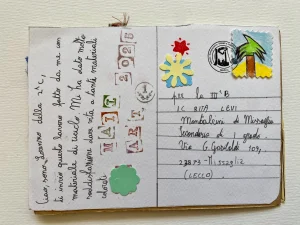 Ciao, sono Lavinia della 1^C,
ti invio questo lavoro fatto da me con
materiale di riciclo. Mi ha dato molta
soddisfazione dare vita a tanti materiali
colorati
MAIL 2025
ART
per la 1^B
IC RITA LEVI
Montalcini di Missaglia
Secondaria di I grado
Via G. Garibaldi 109,
23873 - Missaglia
(LECCO)